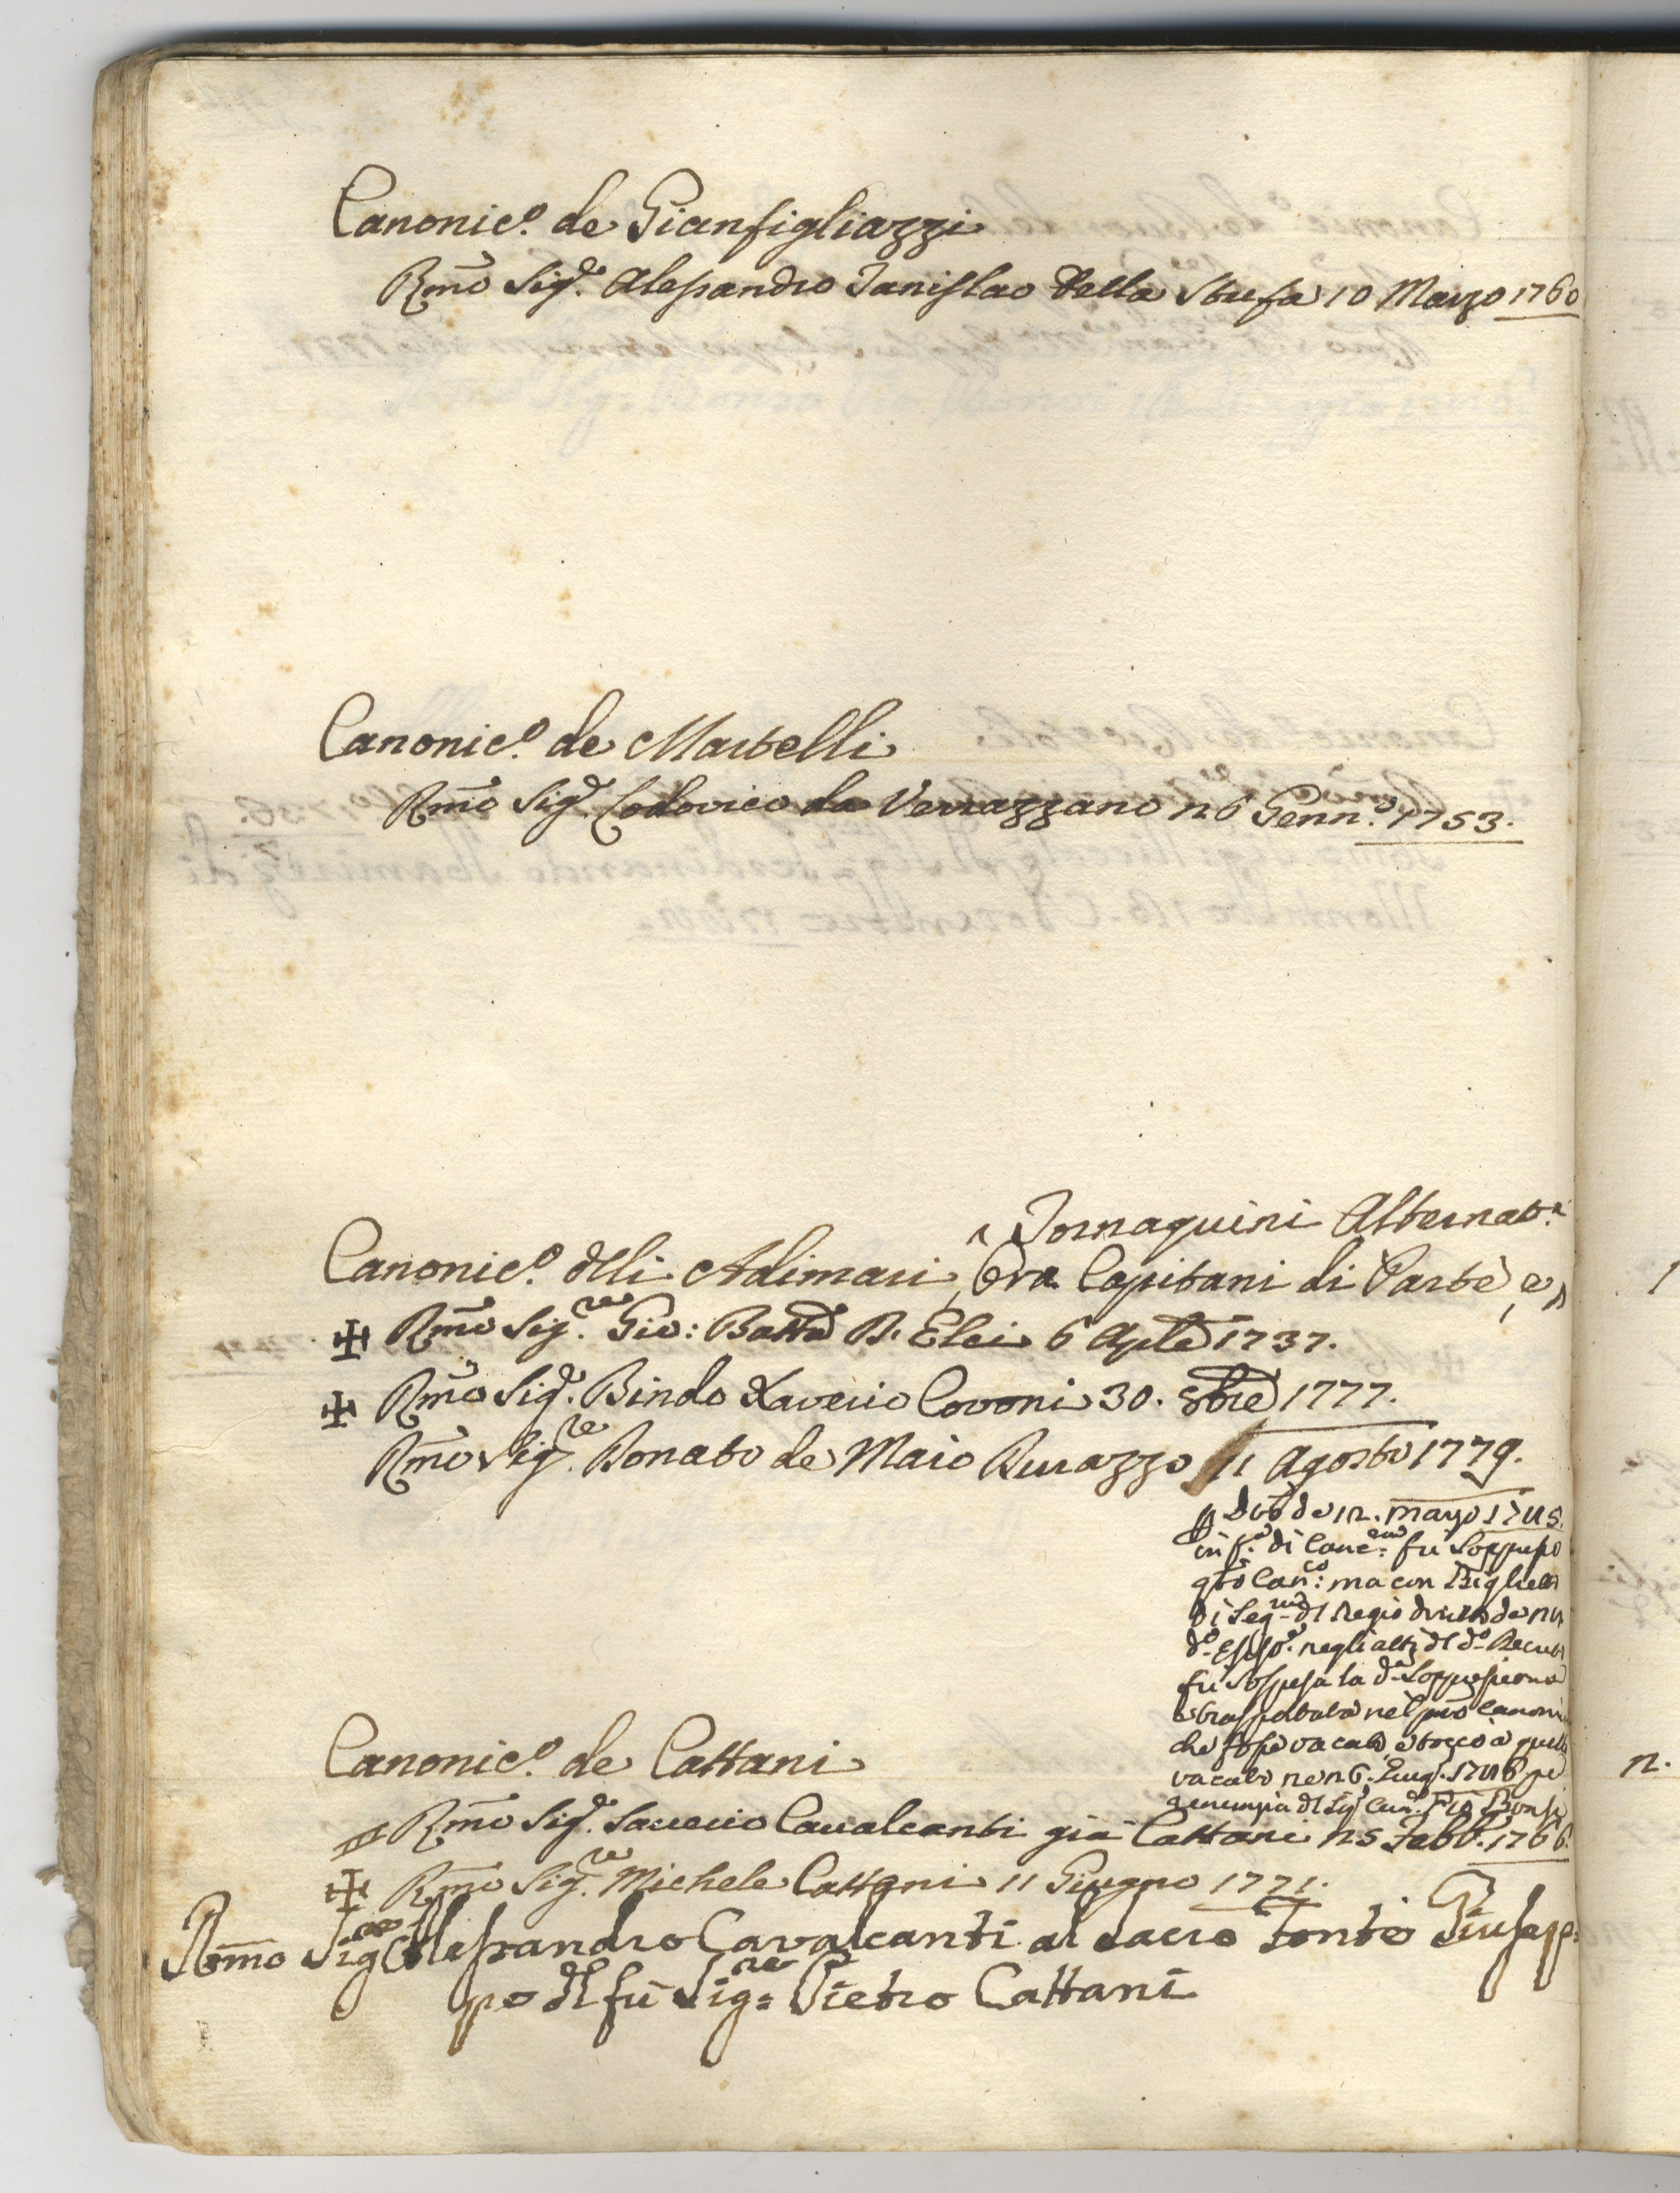 Canonic.º de Gianfigliazzi
Rm̃o Sig.re Alessandro Stanislao Della Stufa 10 Marzo 1760
Canonic.º de Martelli
Rm̃o Sig.re Lodovico da Verrazzano 26 Genn.º 1753.
Tornaquini Alternat.e
Canonic.º d'lli Adimari, Ora Capitani di Parte, e
✠ Rm̃o Sig.re Gio: Batta D. Elci 6 Aple 1737.
✠ Rm̃o Sig.re Bindo Xaverio Covoni 30. 8bre 1777.
Rm̃o Sig.re Donato de Maio Durazzo 11 Agosto 1779.
de 12. marzo 178
di Canc. fu Soppresso
qto Can.co: ma con Biglietto
di Seg.ria dl Regio
negli atti dl d.º
fu sospesa la d.a Soppressione
nel pmo Canoni
che fosse vacato e toccò a quello
vacato
renunzia dl Sig.
Canonic.º de Cattani
Rm̃o Sig.re Saverio Cavalcanti già Cattani 25 Febb.º 1766.
✠ Rm̃o Sig.re Michele Cattani 11 Giugno 1771.
Rm̃o Sig.re Alessandro Cavalcanti al Sacro Fonte Giusep=
po dl fù Sig.re Pietro Cattani